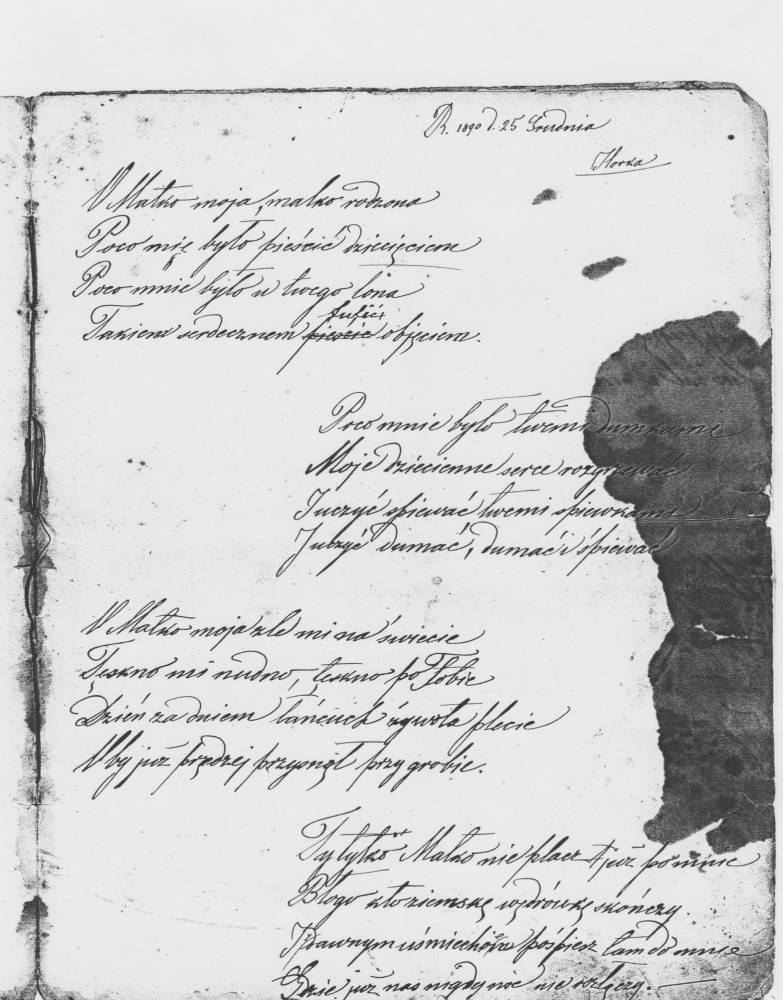 R. 1890 d. 25 Grudnia
Horka
O Matko moja, matko rodzona
Poco mię było pieścić dziecięciem
Poco mnie było u twego łona
tulić
Takiem serdecznem pieścić objęciem.
Poco mnie było twemi dumkami
Moje dziecienne serce rozgrzewać
I uczyć śpiewać twemi śpiewkami
I uczyć dumać, dumać i śpiewać
O Matko moja źle mi na świecie
Tęskno mi nudno, tęskno po Tobie
Dzień za dniem łańcuch żywota plecie
O by już prędzej przysnął przy grobie.
Ty tylko Matko nie płacz już po mnie
Błogo kto ziemską wędrówkę skończy.
Z dawnym uśmiechem pośpiesz tam do mnie
Gdzie już nas nigdy nic nie rozłączy.